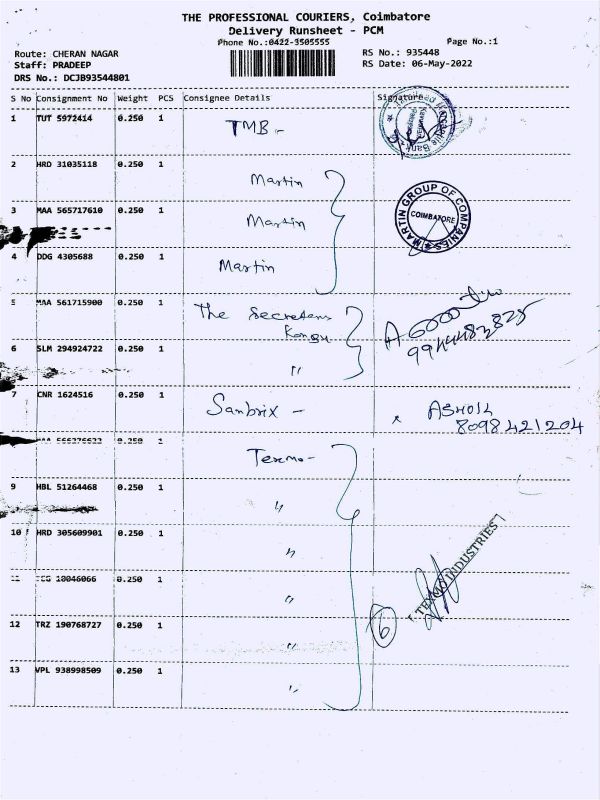 THE PROFESSIONAL COURIERS, Coimbatore
Delivery Runsheet - PCM
Phone No.:0422-3505555
Page No.:1
Route: CHERAN NAGAR
RS No.: 935448
Staff: PRADEEP
RS Date: 06-May-2022
DRS No.: DCJB93544801
S No Consignment No Weight PCS Consignee Details Signature
1 TUT 5972414 0.250 1 TMB -
2 HRD 31035118 0.250 1 Martin
3 MAA 565717610 0.250 1 Martin
MARTIN GROUP OF COMPANIES
COIMBATORE
4 DDG 4305688 0.250 1 Martin
5 MAA 561715900 0.250 1 The Secretary
Kongu
9944483825
6 SLM 294924722 0.250 1 "
7 CNR 1624516 0.250 1 Sanbrix - x ASHOIK
8098421204
MAA 566276622 0.250 1 Texmo -
9 HBL 51264468 0.250 1 "
10 HRD 305609901 0.250 1 "
TEXMO INDUSTRIES
11 10046066 0.250 1 "
12 TRZ 190768727 0.250 1 "
6
13 VPL 938998509 0.250 1 "